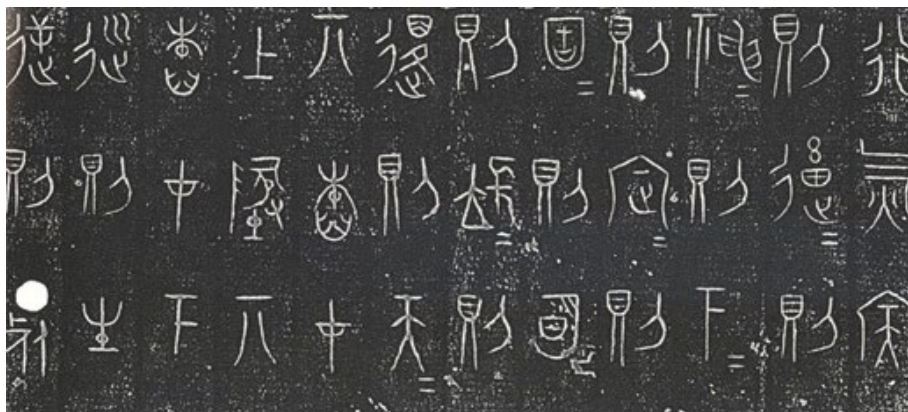 行氣宎
則遀=則
神=則下=
則定=則
固=則明=
則張=則
退則天=
丌舂才
上墬丌
舂才下
巡則生
逆則死